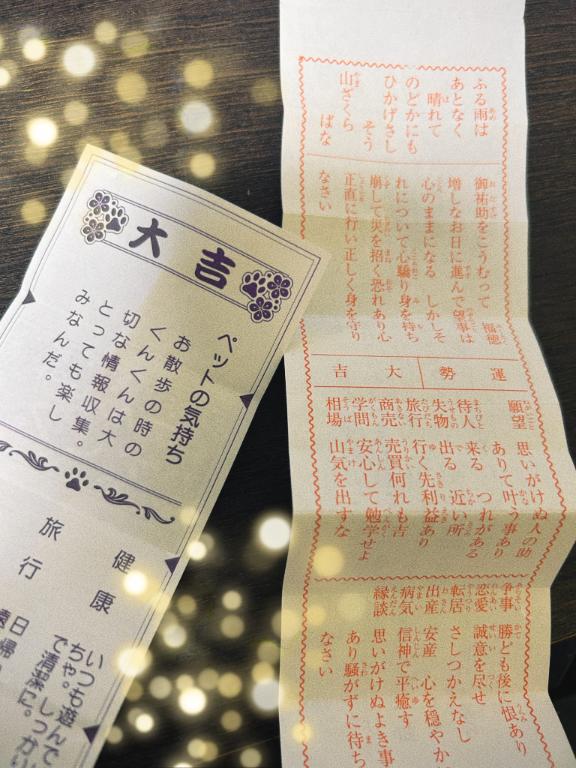 ふる雨は
あとなく
晴れて
のどかにも
ひかげさし
そう
山ざくら
ばな
御祐助をこうむって 福徳
増しなお日に進んで望事は
心のままになる しかしそ
れについて心驕り身を持ち
崩して災を招く恐れあり心
正直に行い正しく身を守り
なさい
運勢
大吉
願望 思いがけぬ人の助
ありて叶う事あり
待人 来る つれがある
失物 出る 近い所
旅行 行く先利益あり
商売 売買何れも吉
学問 安心して勉学せよ
相場 山気を出すな
争事 勝ども後に恨あり
恋愛 誠意を尽せ
転居 さしつかえなし
出産 安産 心を穏やか
病気 信神で平癒す
縁談 思いがけぬよき事
あり騒がずに待ち
なさい
大吉
ペットの気持ち
お散歩の時の
くんくんは大
切な情報収集。
とっても楽し
みなんだ。
健康
いつも遊んで
ちゃ。しっかい
で清潔に。
旅行
日帰